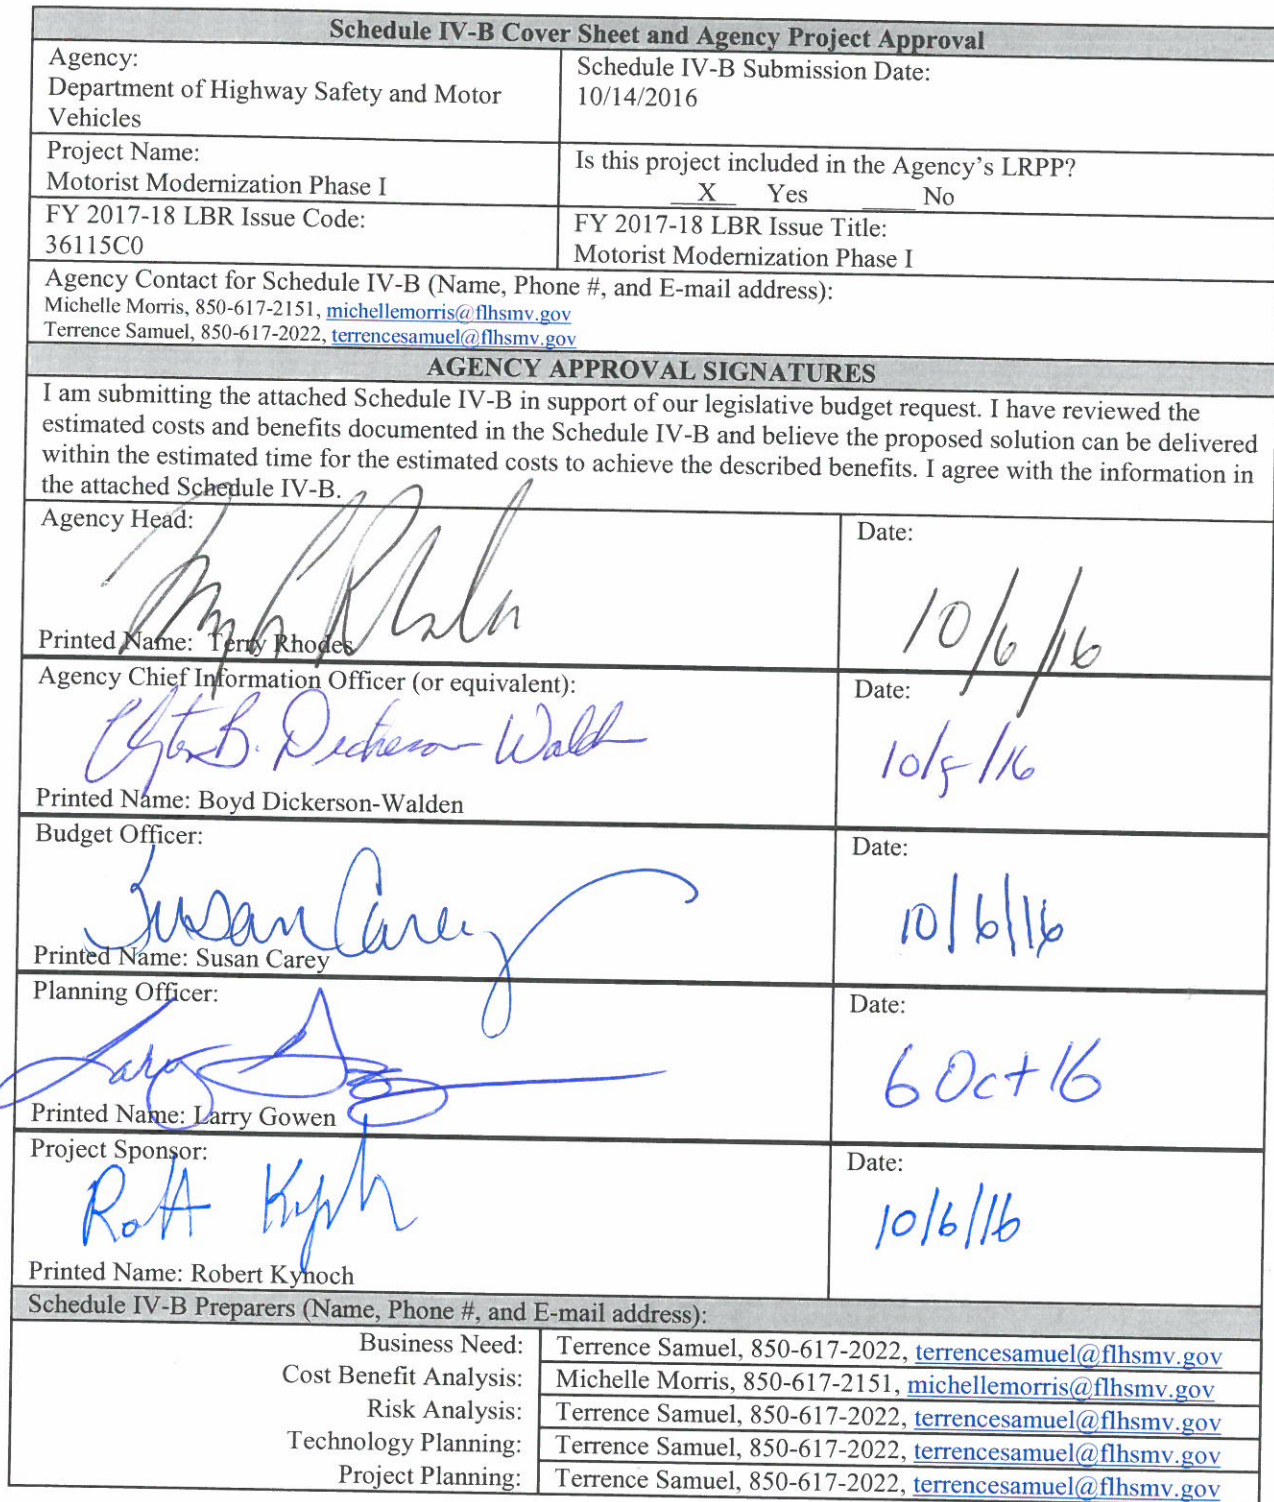 Schedule IV-B Cover Sheet and Agency Project Approval
Agency:
Department of Highway Safety and Motor
Vehicles
Schedule IV-B Submission Date:
10/14/2016
Project Name:
Motorist Modernization Phase I
Is this project included in the Agency's LRPP?
X Yes ____ No
FY 2017-18 LBR Issue Code:
36115C0
FY 2017-18 LBR Issue Title:
Motorist Modernization Phase I
Agency Contact for Schedule IV-B (Name, Phone #, and E-mail address):
Michelle Morris, 850-617-2151, michellemorris@flhsmv.gov
Terrence Samuel, 850-617-2022, terrencesamuel@flhsmv.gov
AGENCY APPROVAL SIGNATURES
I am submitting the attached Schedule IV-B in support of our legislative budget request. I have reviewed the
estimated costs and benefits documented in the Schedule IV-B and believe the proposed solution can be delivered
within the estimated time for the estimated costs to achieve the described benefits. I agree with the information in
the attached Schedule IV-B.
Agency Head:
Printed Name: Terry Rhodes
Date:
10/6/16
Agency Chief Information Officer (or equivalent):
B. Dickerson-Walden
Printed Name: Boyd Dickerson-Walden
Date:
10/5/16
Budget Officer:
Susan Carey
Printed Name: Susan Carey
Date:
10/6/16
Planning Officer:
Larry
Printed Name: Larry Gowen
Date:
6 Oct 16
Project Sponsor:
Printed Name: Robert Kynoch
Date:
10/6/16
Schedule IV-B Preparers (Name, Phone #, and E-mail address):
Business Need: Terrence Samuel, 850-617-2022, terrencesamuel@flhsmv.gov
Cost Benefit Analysis: Michelle Morris, 850-617-2151, michellemorris@flhsmv.gov
Risk Analysis: Terrence Samuel, 850-617-2022, terrencesamuel@flhsmv.gov
Technology Planning: Terrence Samuel, 850-617-2022, terrencesamuel@flhsmv.gov
Project Planning: Terrence Samuel, 850-617-2022, terrencesamuel@flhsmv.gov